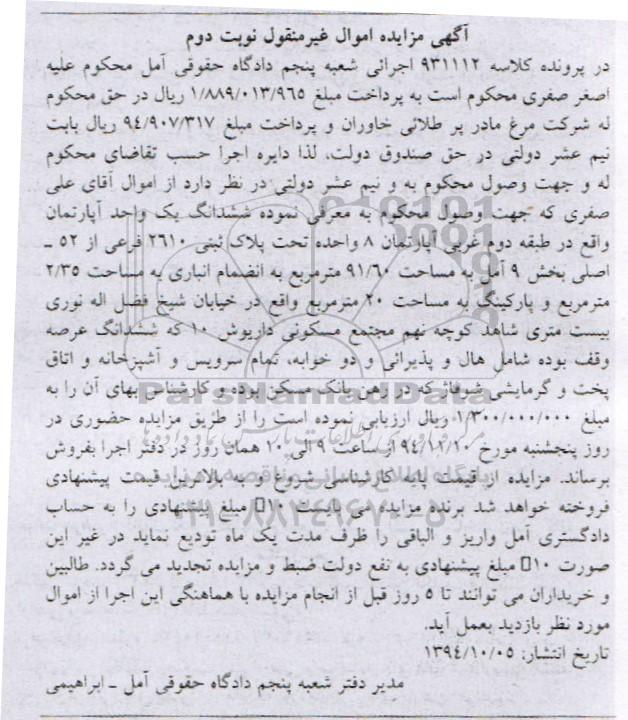 آگهی مزایده اموال غیرمنقول نوبت دوم
در پرونده کلاسه ۹۳۱۱۱۲ اجرائی شعبه پنجم دادگاه حقوقی آمل محکوم علیه
اصغر صفری محکوم است به پرداخت مبلغ ۱/۸۸۹/۰۱۳/۹۶۵ ریال در حق محکوم
له شرکت مرغ مادر پر طلائی خاوران و پرداخت مبلغ ۹۴/۹۰۷/۳۱۷ ریال بابت
نیم عشر دولتی در حق صندوق دولت، لذا دایره اجرا حسب تقاضای محکوم
له و جهت وصول محکوم به و نیم عشر دولتی در نظر دارد از اموال آقای علی
صفری که جهت وصول محکوم به معرفی نموده ششدانگ یک واحد آپارتمان
واقع در طبقه دوم غربی آپارتمان ۸ واحده تحت پلاک ثبتی ۲۶۱۰ فرعی از ۵۲ ـ
اصلی بخش ۹ آمل به مساحت ۹۱/۶۰ مترمربع به انضمام انباری به مساحت ۲/۳۵
مترمربع و پارکینگ به مساحت ۲۰ مترمربع واقع در خیابان شیخ فضل اله نوری
بیست متری شاهد کوچه نهم مجتمع مسکونی داریوش ۱۰ که ششدانگ عرصه
وقف بوده شامل هال و پذیرائی و دو خوابه، تمام سرویس و آشپزخانه و اتاق
پخت و گرمایشی شوفاژ که در رهن بانک مسکن بوده و کارشناس بهای آن را به
مبلغ ۱/۳۰۰/۰۰۰/۰۰۰ ریال ارزیابی نموده است را از طریق مزایده حضوری در
روز پنجشنبه مورخ ۹۴/۱۱/۱۰ از ساعت ۹ الی ۱۰ همان روز در دفتر اجرا بفروش
برساند. مزایده از قیمت پایه کارشناسی شروع و به بالاترین قیمت پیشنهادی
فروخته خواهد شد برنده مزایده می بایست ۱۰ مبلغ پیشنهادی را به حساب
دادگستری آمل واریز و الباقی را ظرف مدت یک ماه تودیع نماید در غیر این
صورت ۱۰ مبلغ پیشنهادی به نفع دولت ضبط و مزایده تجدید می گردد. طالبین
و خریداران می توانند تا ۵ روز قبل از انجام مزایده با هماهنگی این اجرا از اموال
مورد نظر بازدید بعمل آید.
تاریخ انتشار: ۱۳۹۴/۱۰/۰۵
مدیر دفتر شعبه پنجم دادگاه حقوقی آمل ـ ابراهیمی
ParsNamadData